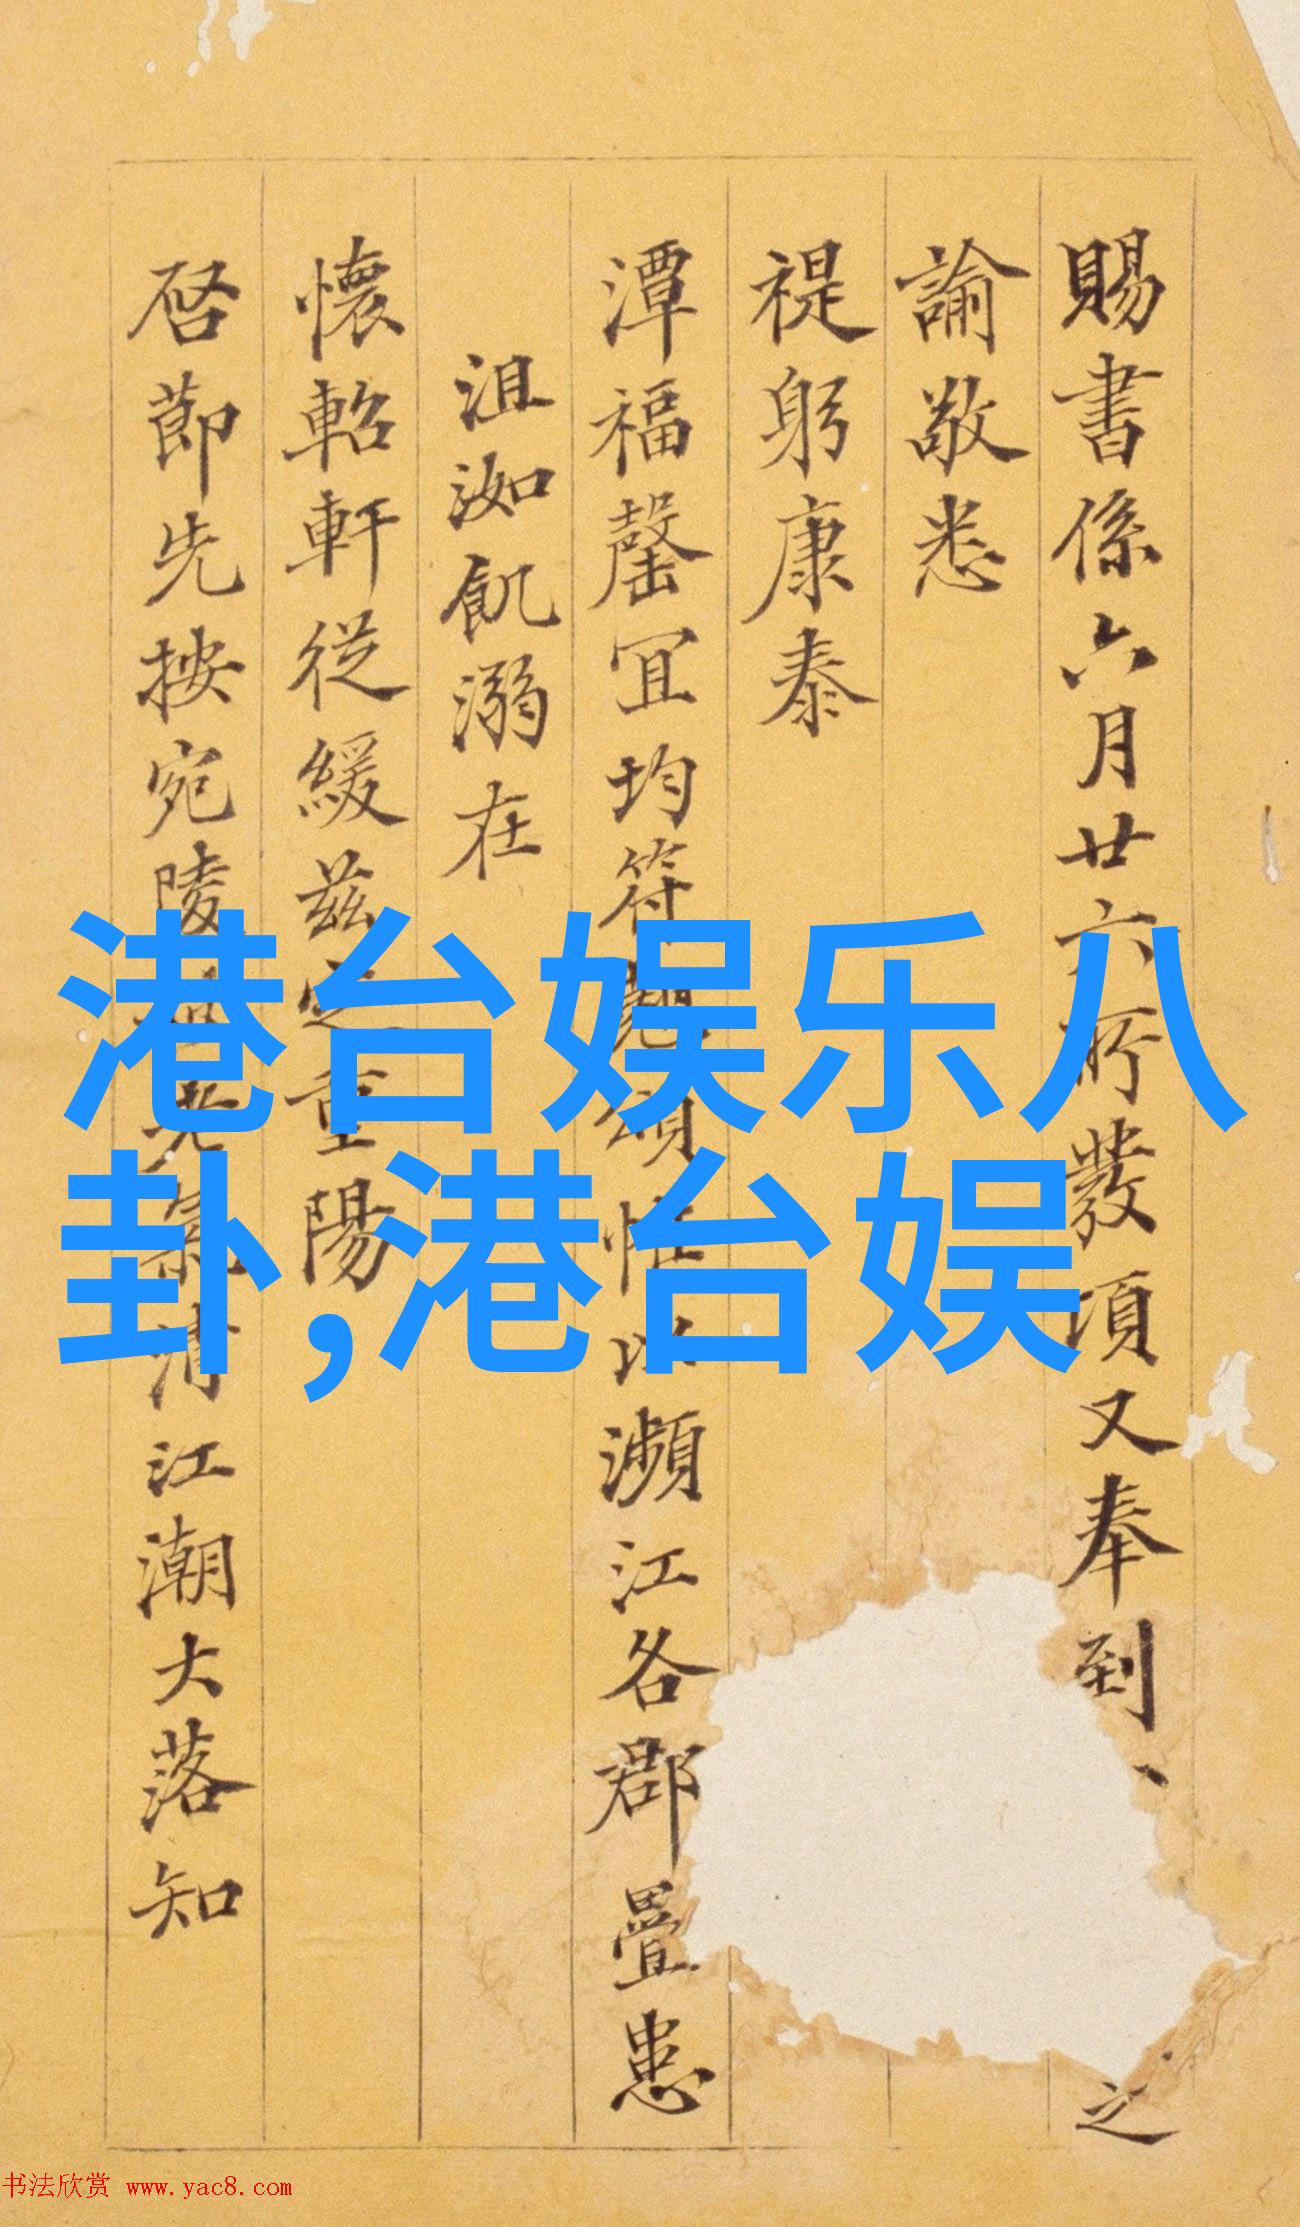 賜書係六月廿六所發頃又奉到、之
諭敬悉
禔躬康泰
潭福罄宜均符頌惟以瀕江各郡疊患
沮洳飢溺在
懷軺軒從緩茲重陽
啓節先按宛陵清江潮大落知
港台娱乐八
卦,港台娱
书法欣赏 www.yac8.com